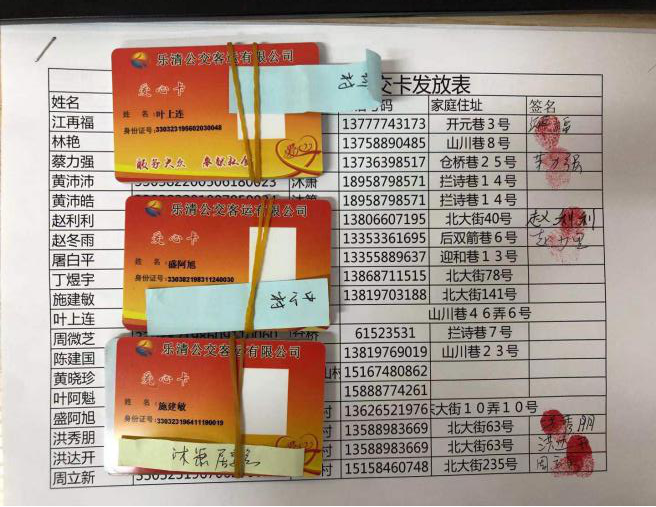 乐清公交客运有限公司
爱心卡
姓 名:叶上连
身份证号:330323195602030048
服务大众 奉献社会
乐清公交客运有限公司
爱心卡
姓 名:盛阿旭
身份证号:330382198311240030
乐清公交客运有限公司
爱心卡
姓 名:施建敏
身份证号:330323196411190019
交卡发放表
姓名 号码 家庭住址 签名
江再福 13777743173 开元巷3号
林艳 13758890485 山川巷8号
蔡力强 13736398517 仓桥巷25号 蔡力强
黄沛沛 18958798571 拦诗巷14号
黄沛皓 18958798571 拦诗巷14号
赵利利 13806607195 北大街40号 赵利利
赵冬雨 13353361695 后双箭巷6号
屠白平 13355889637 迎和巷13号
丁煜宇 13868711515 北大街78号
施建敏 13819703188 北大街141号
叶上连 山川巷46弄6号
周微芝 桥 61523531 拦诗巷7号
陈建国 13819769019 山川巷23号
黄晓珍 山村 15167480862
叶阿魁 15888774261
盛阿旭 村 13626521976 东大街10弄10号
洪秀朋 13588983669 北大街63号
洪达开 村 13588983669 北大街63号
周立新 村 15158460748 北大街235号